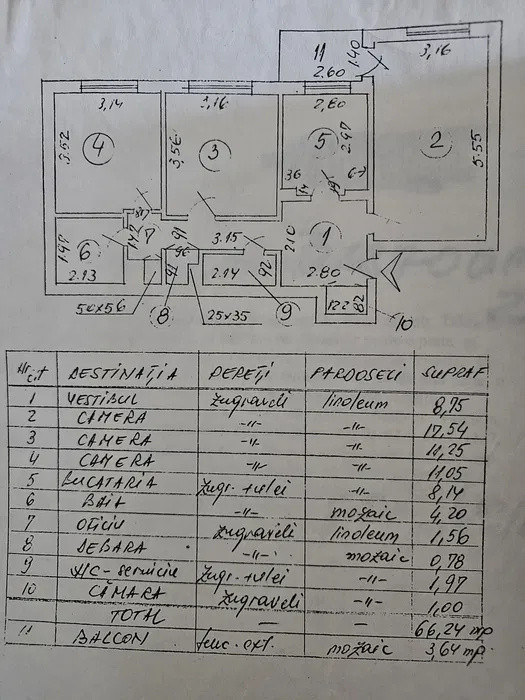 11
1.40
2.60
3,16
3,14
3,16
2,80
3.52
4
3,56
3
5
2,97
2
5.55
36
14
19
67
87
1,97
6
1,42
7
91
3.15
210
1
2.13
96
91
2.14
92
2.80
122
82
50x56
8
25x35
9
10
Nr. crt DESTINAȚIA PEREȚI PARDOSELI SUPRAF
1 VESTIBUL zugraveli linoleum 8,75
2 CAMERA -"- -"- 17,54
3 CAMERA -"- -"- 11,25
4 CAMERA -"- -"- 11,05
5 BUCATARIA zugr.+ulei -"- 8,14
6 BAIA -"- mozaic 4,20
7 OFICIU zugraveli linoleum 1,56
8 DEBARA -"- mozaic 0,78
9 WC-serviciu zugr.+ulei -"- 1,97
10 CĂMARA zugraveli -"- 1,00
TOTAL — — 66,24 mp
11 BALCON tenc.ext. mozaic 3,64 mp.